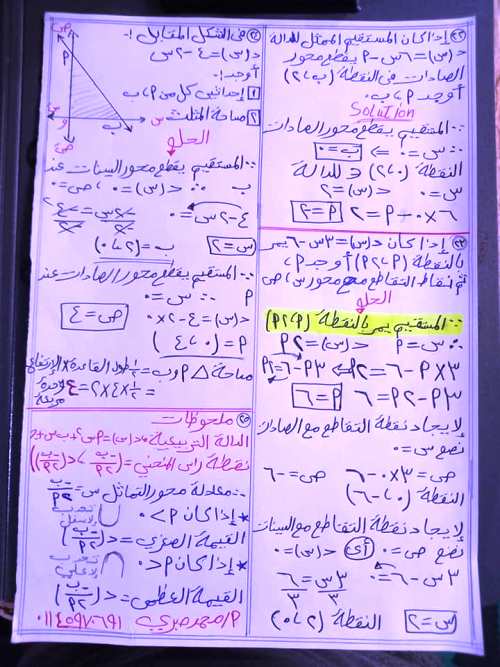 (٢٢) إذا كان المستقيم الممثل للدالة
د(س) = ٦س - P يقطع محور
الصادات في النقطة (ب، ٢)
أوجد P، ب.
Solution
∵ المستقيم يقطع محور الصادات
∴ س = ٠ ⇐ ب = ٠
النقطة (٠، ٢) ∈ للدالة
س = ٠ د(س) = ٢
٦×٠ - P = ٢
(٢٣) إذا كان د(س) = ٣س - ٦ يمر
بالنقطة (P، ٢P) أوجد P،
ثم نقاط التقاطع مع محور س، ص
الحلو
∵ المستقيم يمر بالنقطة (P، ٢P)
∴ س = P د(س) = ٢P
٣×P - ٦ = ٢P ⇐ ٣P - ٦ = ٢P
٣P - ٢P = ٦ P = ٦
لإيجاد نقطة التقاطع مع الصادات
نضع س = ٠
ص = ٣×٠ - ٦ ص = -٦
النقطة (٠، -٦)
لإيجاد نقطة التقاطع مع السينات
نضع ص = ٠ أي د(س) = ٠
٣س - ٦ = ٠
٣س/٣ = ٦/٣
س = ٢ النقطة (٢، ٠)
في الشكل المقابل :-
د(س) = ٤ - ٢س
أوجد :-
١ إحداثيي كل من P، ب
٢ مساحة المثلث
ص
P
و
ب
س
ص
الحلو
∵ المستقيم يقطع محور السينات عند
ب ∴ د(س) = ٠، ص = ٠
٤ - ٢س = ٠
س = ٢ ب = (٢، ٠)
∵ المستقيم يقطع محور الصادات عند
P ∴ س = ٠
د(س) = ٤ - ٢×٠ ص = ٤
P = (٠، ٤)
مساحة △ P و ب = ١/٢ طول القاعدة × الارتفاع
= ١/٢ × ٤ × ٢ = ٤ وحدة مربعة
(٢٥) ملحوظات
الدالة التربيعية د(س) = Pس² + ب س + جـ
نقطة رأس المنحني = (-ب/٢P، د(-ب/٢P))
∴ معادلة محور التماثل س = -ب/٢P
* إذا كان P > ٠
القيمة الصغرى = د(-ب/٢P)
* إذا كان P < ٠
القيمة العظمى = د(-ب/٢P)